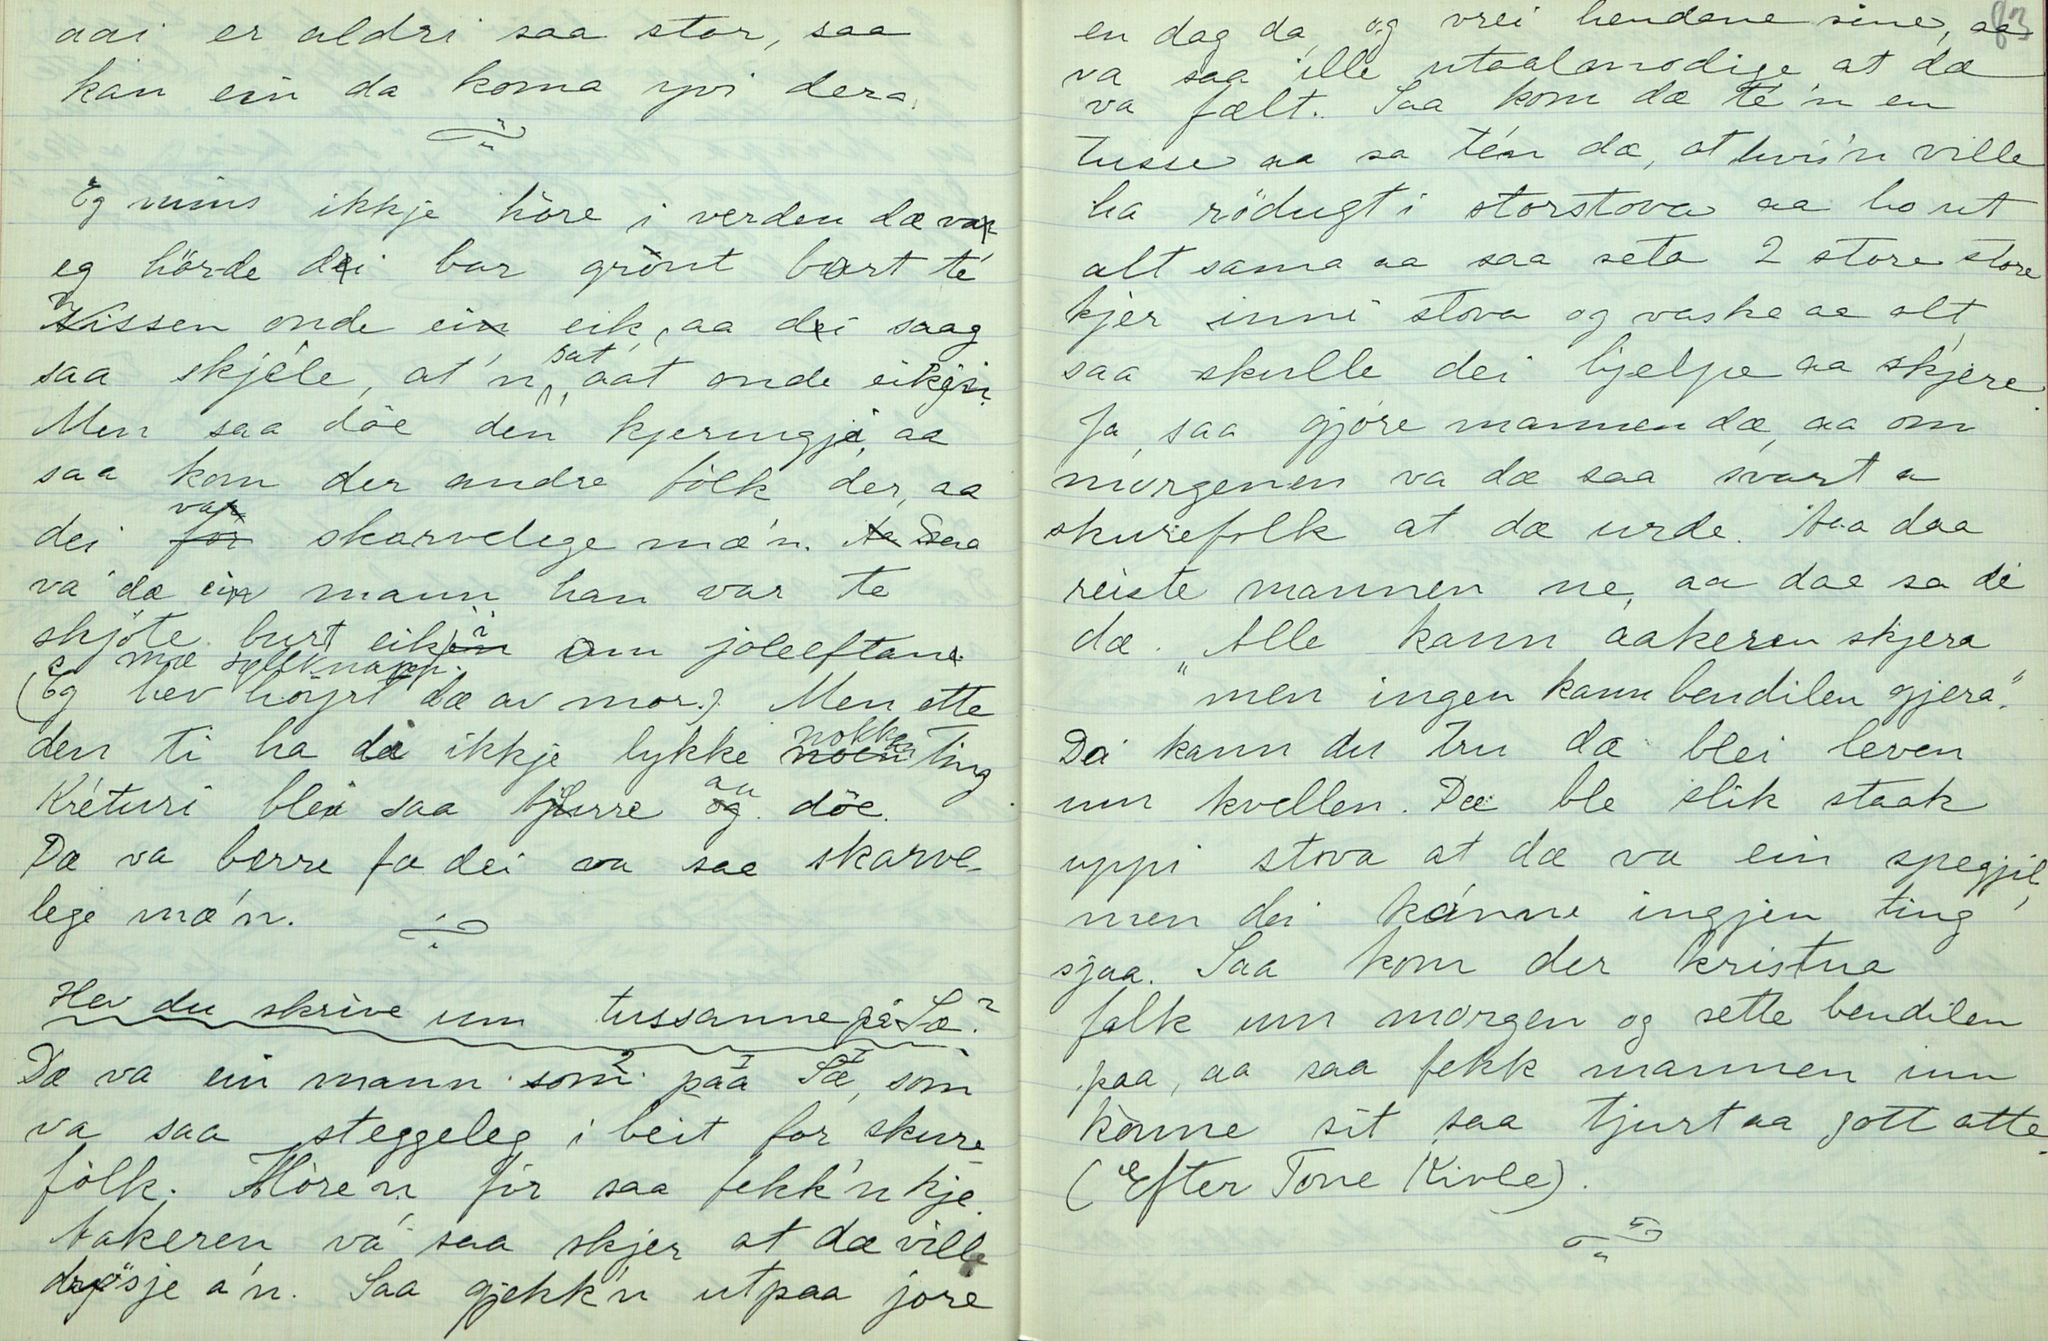 aai er aldri saa stor, saa
kan ein da koma yvi dera.
Eg mins ikkje höre i verden dæ var
eg hörde dei bar grönt bort té
Nissen onde ein eik, aa dei saag
saa skjéle, at'n sat aat onde eikjin.
Men saa döe den kjeringji, aa
saa kom der andre folk der, aa
dei for var skarvelege mæ'n. Aa Saa
va dæ ein mann han var te
skjöte burt eikjin um joleeftane
mæ syllknapp.
(Eg hev höyrt dæ av mor.) Men ette
den ti ha dei ikkje lykke noen nokken ting
Kréturi blei saa tjurre og aa döe.
Dæ va berre fo dei va saa skarve-
lege mæ'n.
Hev du skrive um tussanne på Sæ?
Dæ va ein mann som paa Sæ, som
va saa steggeleg i beit for skure
folk. Höre'n för saa fekk'n kje.
Aakeren va saa skjer at dæ ville
drysje a'n. Saa gjekk'n utpaa jore
83
en dag da, og vrei hendane sine, aa
va saa ille utaalmodige at dæ
va fælt. Saa kom dæ te'n en
tusse aa sa té'n dæ, at hvis'n ville
ha rödugt i storstova aa ho ut
alt sama aa saa seta 2 store store
kjer inni stova og vaske aa alt,
saa skulle dei hjelpe aa skjere
Ja, saa gjore mannen dæ, aa om
morgenen va dæ saa svart a
skurefolk at dæ urde. Aaa daa
reiste mannen ne, aa daa sa dei
dæ. Alle kann aakeren skjera
"men ingen kann bendilen gjera".
Då kann du tru dæ blei leven
um kvellen. Dæ ble slik staak
uppi stova at dæ va ein spegjil,
men dei kánne ingjen ting
sjaa. Saa kom der kristne
folk um morgen og sette bendilen
paa, aa saa fekk mannen inn
konne sit saa tjurt aa gott atte.
(Efter Tone Kivle).